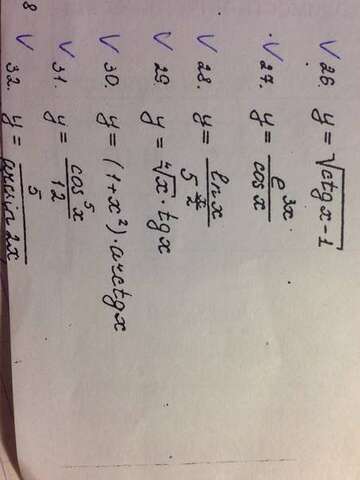 8
V 26. y = √(ctgx-1)
V 27. y = e^{3x}/cosx
V 28. y = lnx/5^{x/2}
V 29. y = ⁴√x · tgx
V 30. y = (1+x²) · arctgx
V 31. y = cos⁵x/12
V 32. y = 5/arcsin2x